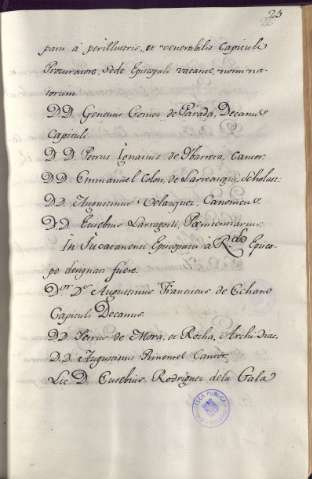 23
pam á perillustris, et venerabilis Capituli
Procuratore, Sede Episcopali vacante, nomina
torum.
D.D. de Parada, Decanus
Capituli.
D D Petrus Ignatius de Ybarreta, Cantor.
D.D. Emmanuel Colon, de Larreategui, Scholast.
D.D. Augustinus Velazquez, Canonicus
D D Eusebius Larragoiti, Poenitentiarius.
In Jucatanensi Episcopatu á R. Episco
po designati fuere.
D. D. Augustinus Franciscus de Echano
Capituli Decanus.
D.D. Petrus de Mora, et Rocha, Archi Diac.
D.D. Augustinus Pimentel Cantor.
Lic D. Eusebius Rodriguez de la Gala